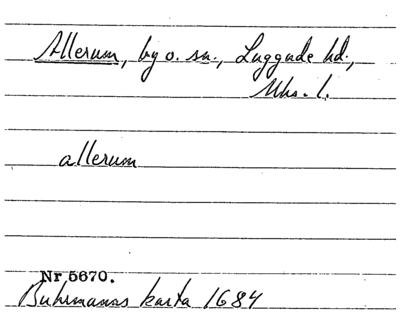 Allerum, by o. sn., Luggude hd.,
Mhs. l.
allerum
Nr 5670.
Buhrmanns karta 1684